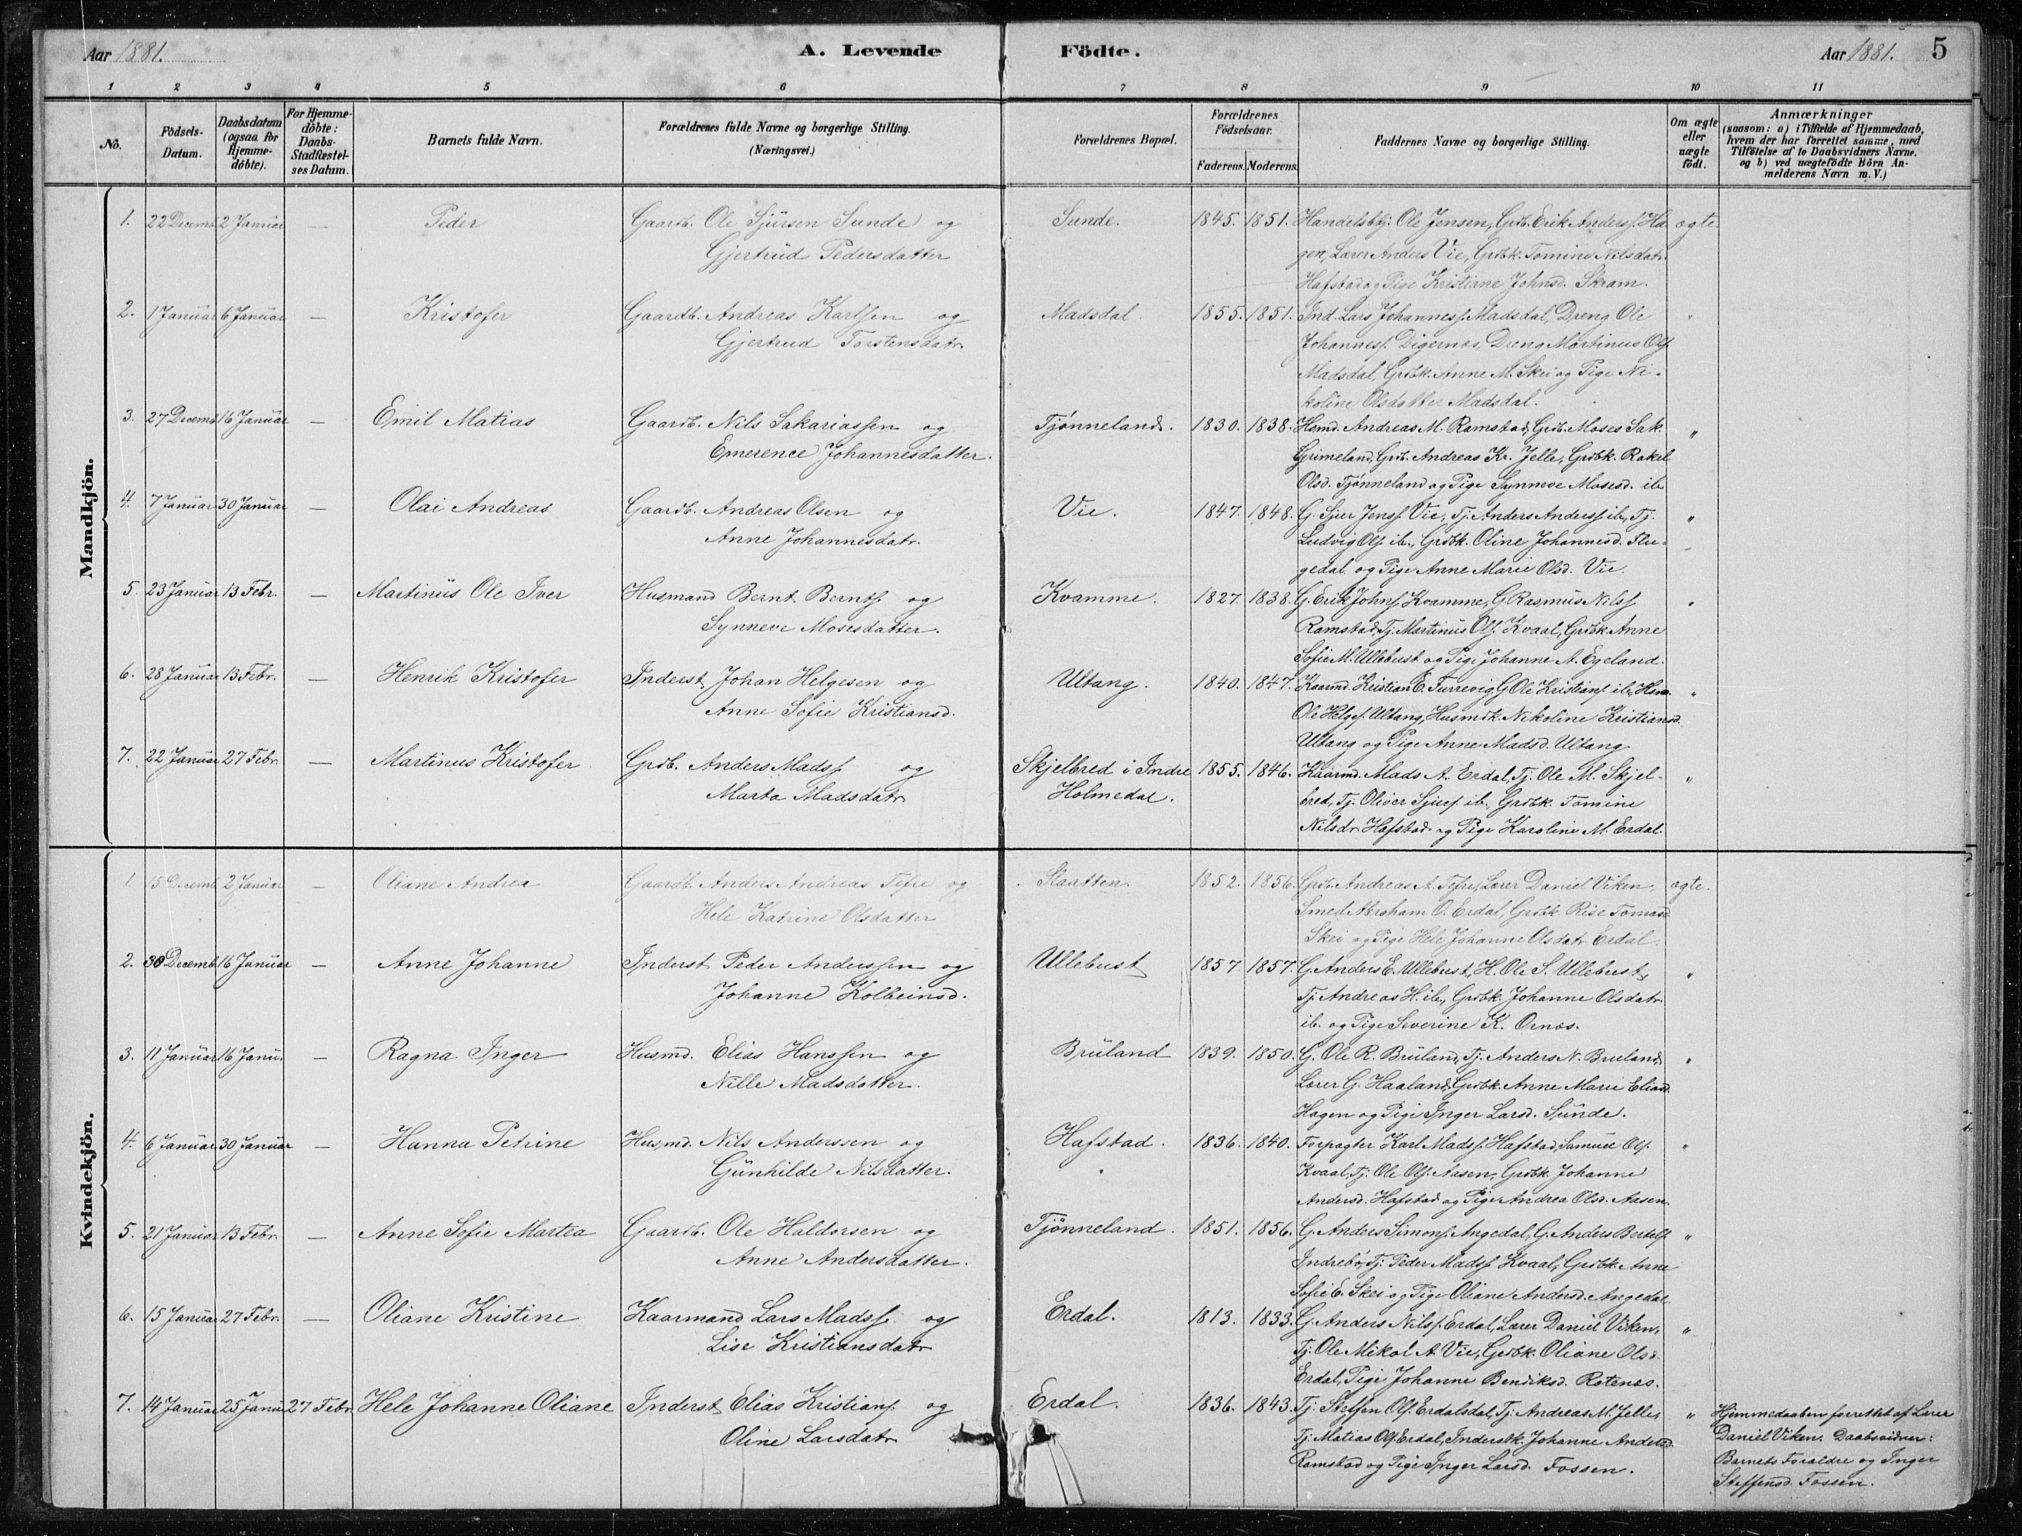 Aar 1881. A. Levende Födte. Aar 1881. 5
1 2 3 4 5 6 7 8 9 10 11
No. Födsels-Datum. Daabsdatum (ogsaa for Hjemmedöbte). For Hjemmedöbte: Daabs-Stadfæstelses Datum. Barnets fulde Navn. Forældrenes fulde Navne og borgerlige Stilling. (Næringsvei.) Forældrenes Bopæl. Forældrenes Födselsaar. Faderens. Moderens. Faddernes Navne og borgerlige Stilling. Om ægte eller uægte födt. Anmærkninger (saasom: a) i Tilfælde af Hjemmedaab, hvem der har forrettet samme, med Tilföielse af to Daabsvidners Navne, og b) ved uægtefödte Börn Anmelderens Navn m. V.)
Mandkjön.
1. 22 Decemb 2 Januar — Peder Gaardb. Ole Sjursen Sunde og Sunde. 1845. 1851. Handelsbtj. Ole Jensen, Grdb. Erik Anderss. Ha- ægte.
Gjertrud Pedersdatter gen, Lærer Anders Vie, Grdbk. Tomine Nilsdatr.
Hafstad og Pige Kristiane Johnsd. Skram.
2. 1 Januar 6 Januar — Kristofer Gaardb. Andreas Karlsen og Madsdal. 1855. 1851. Ind. Lars Johanness. Madsdal, Dreng Ole "
Gjertrud Torstensdatr. Johanness. Digernes, Dreng Martinus Ols.
Madsdal, Grdbk. Anne M. Skei og Pige Ni-
koline Olsdatter Madsdal.
3. 27 Decemb 16 Januar — Emil Matias Gaardb. Nils Sakariassen og Tjønneland. 1830. 1838. Husmd. Andreas M. Ramstad, Grdb. Moses Sak. "
Emerence Johannesdatter. Grimeland, Grdb. Andreas Kr. Jelle, Grdbk. Rakel
Olsd. Tjønneland og Pige Synneve Mosesd. ib.
4. 7 Januar 30 Januar — Olai Andreas Gaardb. Andreas Olsen og Vie. 1847. 1848. G. Sjur Jenss. Vie, Tj. Anders Anderss. ib., Tj. "
Anne Johannesdatr. Ludvig Ols. ib., Grdbk. Oline Johannesd. Flu-
gedal og Pige Anne Marie Olsd. Vie.
5. 23 Januar 13 Febr. — Martinus Ole Iver Husmand Bernt Bernts. og Kvamme. 1827. 1838. G. Erik Johns. Kvamme, G. Rasmus Nils. "
Synneve Mosesdatter. Ramstad, Tj. Martinus Ols. Kvaal, Grdbk. Anne
Sofie M. Ullebust og Pige Johanne A. Egeland.
6. 28 Januar 13 Febr. — Henrik Kristofer Inderst Johan Helgesen og Ultang. 1840. 1847. Kaarmd. Kristian E. Furrevig, G. Ole Kristians. ib., "
Anne Sofie Kristiansd. Ole Helges. Ultang, Husmdk. Nikoline Kristiansd.
Ultang og Pige Anne Madsd. Ultang
7. 22 Januar 27 Febr. — Martinus Kristofer Grdb. Anders Mads. og Skjelbred i Indre 1855. 1846. Kaarmd. Mads A. Erdal, Tj. Ole M. Skjel- "
Marta Madsdatr. Holmedal. bred, Tj. Oliver Sjurs. ib., Grdbk. Tomine
Nilsdr. Hafstad og Pige Karoline M. Erdal.
Kvindekjön.
1. 15 Decemb 2 Januar — Oliane Andrea Gaardb. Anders Andreas Tefre og Slaatten 1852. 1856. Grdb. Andreas A. Tefre, Lærer Daniel Viken, ægte.
Hele Katrine Olsdatter Smed Abraham O. Erdal, Grdbk. Rise Tomasd
Skei og Pige Hele Johanne Olsdatr Erdal.
2. 30 Decemb 16 Januar — Anne Johanne Inderst Peder Anderssen og Ullebust 1857. 1857. G. Anders E. Ullebust, H. Ole S. Ullebust, "
Johanne Kolbeinsd. Tj. Andreas H. ib., Grdbk. Johanne Olsdatr.
ib. og Pige Severine K. Ornæs.
3. 11 Januar 16 Janu. — Ragna Inger Husmd. Elias Hanssen og Bruland 1839. 1850. G. Ole R. Bruland, Tj. Anders N. Bruland, "
Nille Madsdatter. Lærer G. Haaland, Grdbk. Anne Marie Eliasd.
Hagen og Pige Inger Larsd. Sunde.
4. 6 Januar 30 Januar — Hanna Petrine Husmd. Nils Anderssen og Hafstad. 1836. 1840. Forpagter Karl Mads. Hafstad, Samuel Ols. "
Gunhilde Nilsdatter. Kvaal, Tj. Ole Ols. Aasen, Grdbk. Johanne
Andersd. Hafstad og Pige Andrea Olsd. Aasen.
5. 21 Januar 13 Febr. — Anne Sofie Martea Gaardb. Ole Haldorsen og Tjønneland. 1851. 1856. G. Anders Simons. Angedal, G. Anders Bertels. "
Anne Andersdatter. Indrebø, Tj. Peder Mads. Kvaal, Grdbk. Anne
Sofie E. Skei og Pige Oliane Andersd. Angedal.
6. 15 Januar 27 Febr. — Oliane Kristine Kaarmand Lars Mads. og Erdal. 1813. 1833. G. Anders Nils. Erdal, Lærer Daniel Viken, "
Lise Kristiansdatr Tj. Ole Mikal A. Vie, Grdbk. Oliane Olsd.
Erdal, Pige Johanne Bendiksd. Rotenæs.
7. 14 Januar 25 Janu 27 Febr. Hele Johanne Oliane Inderst Elias Kristians. og Erdal. 1836. 1843. Tj. Steffen Ols. Erdalsdal, Tj. Andreas M. Jelle, " Hjemmedaaben forrettet af Lærer
Oline Larsdatr Tj. Matias Ols. Erdal, Inderstk. Johanne Andersd. Daniel Viken. Daabsvidner:
Ramstad og Pige Inger Larsd. Fossen. Barnets Forældre og Inger
Steffensd. Fossen.